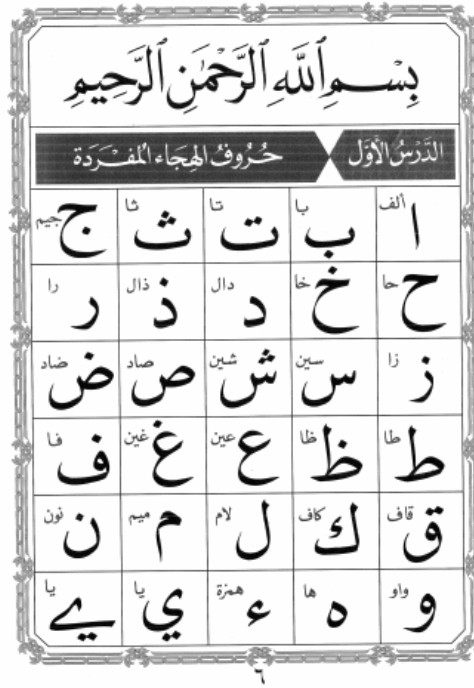 بِسْمِ ٱللَّهِ ٱلرَّحْمَٰنِ ٱلرَّحِيمِ
الدَّرْسُ الأَوَّل حُرُوفُ الهِجَاءِ المُفْرَدَة
ا ألف ب با ت تا ث ثا ج جيم
ح حا خ خا د دال ذ ذال ر را
ز زا س سين ش شين ص صاد ض ضاد
ط طا ظ ظا ع عين غ غين ف فا
ق قاف ك كاف ل لام م ميم ن نون
و واو ه ها ء همزة ي يا ے يا
٦